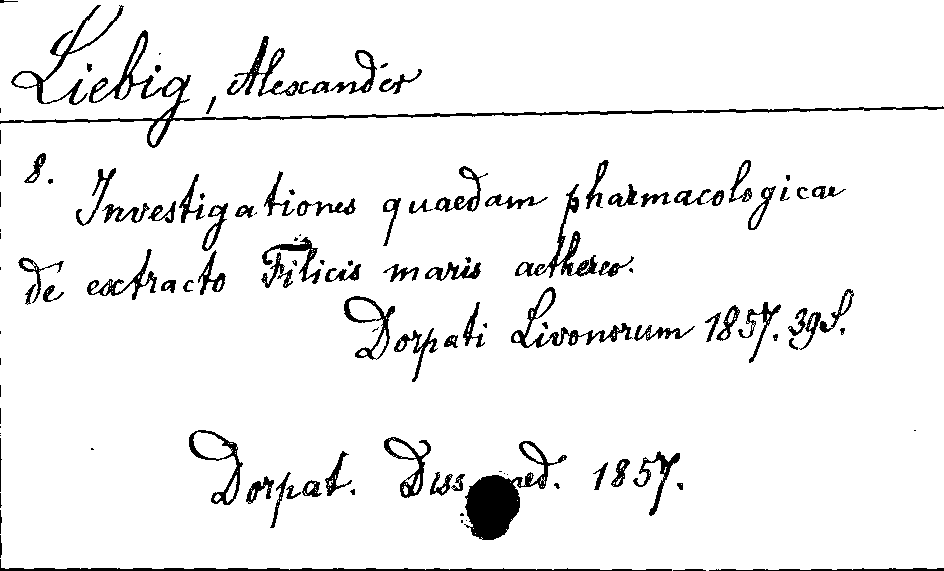 Liebig, Alexander
8.
Investigationes quaedam pharmacologicae
de extracto Filicis maris aethereo.
Dorpati Livonorum 1857. 39 S.
Dorpat. Diss. med. 1857.